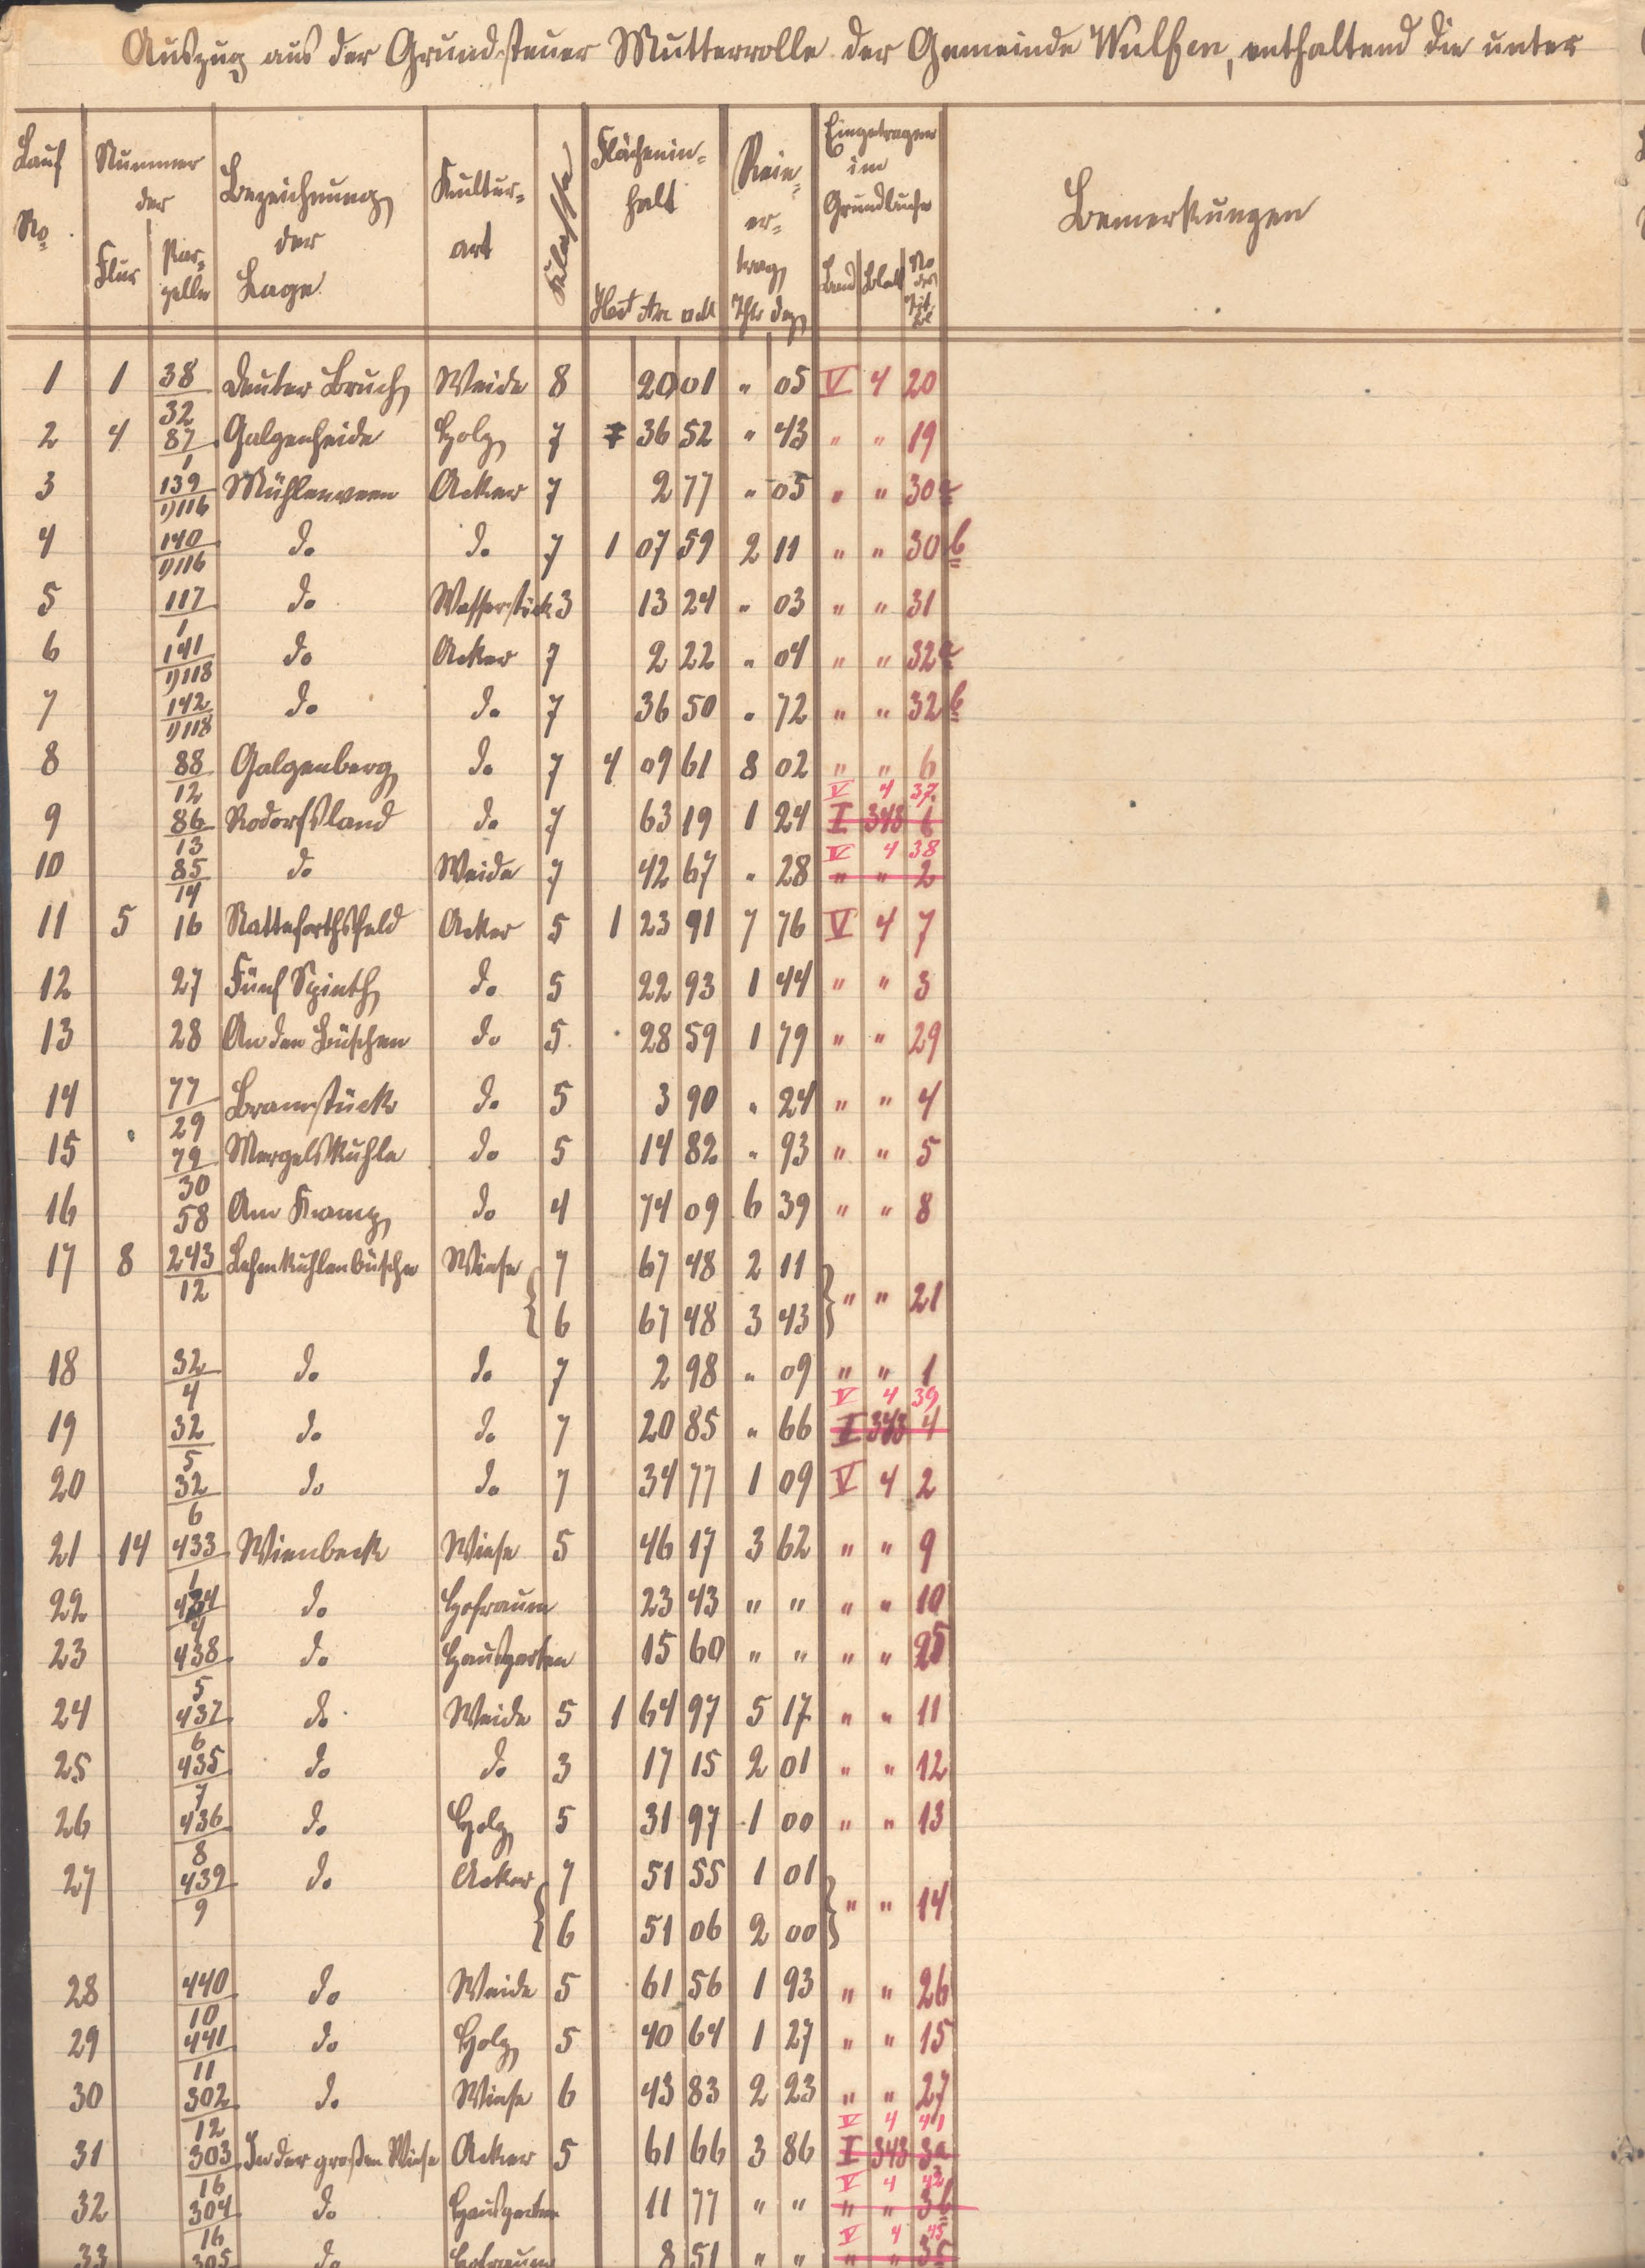 Auszug aus der Grundsteuer Mutterrolle der Gemeinde Wulfen, enthaltend die unter
Lauf No. Nummer der Flur Parzelle Bezeichnung der Lage Kultur-art Klasse Flächenin-halt Hect Are □M Rein-er-trag Thlr Dez Eingetragen im Grundbuche Band Blatt No des Titel Bemerkungen
1 1 38/32 Deuter Bruch Weide 8 20 01 " 05 V 4 20
2 4 87/1 Galgenheide Holz 7 36 52 " 43 " " 19
3 139/1)116 Mühlenveen Acker 7 2 77 " 05 " " 30a
4 140/1)116 do do 7 1 07 59 2 11 " " 30b
5 117/1 do Wasserstück 3 13 24 " 03 " " 31
6 141/1)118 do Acker 7 2 22 " 04 " " 32a
7 142/1)118 do do 7 36 50 " 72 " " 32b
8 88/12 Galgenberg do 7 4 09 61 8 02 " " 6
V 4 37.
9 86/13 Rodorfsland do 7 63 19 1 24 I 343 6
IV 4 38
10 85/14 do Weide 7 42 67 " 28 " " 2
11 5 16 Natteforthsfeld Acker 5 1 23 91 7 76 V 4 7
12 27 Fünf Spinth do 5 22 93 1 44 " " 3
13 28 An den Büschen do 5 28 59 1 79 " " 29
14 77/29 Bramstück do 5 3 90 " 24 " " 4
15 79/30 Mergelskuhle do 5 14 82 " 93 " " 5
16 58 Am Kamp do 4 74 09 6 39 " " 8
17 8 243/12 Lehmkuhlenbüsche Wiese 7 67 48 2 11
6 67 48 3 43 " " 21
18 32/4 do do 7 2 98 " 09 " " 1
V 4 39
19 32/5 do do 7 20 85 " 66 I 343 4
20 32/6 do do 7 34 77 1 09 V 4 2
21 14 433/1 Wienbeck Wiese 5 46 17 3 62 " " 9
22 434/4 do Hofraum 23 43 " " " " 10
23 438/5 do Hausgarten 15 60 " " " " 25
24 437/6 do Weide 5 1 64 97 5 17 " " 11
25 435/7 do do 3 17 15 2 01 " " 12
26 436/8 do Holz 5 31 97 1 00 " " 13
27 439/9 do Acker 7 51 55 1 01
6 51 06 2 00 " " 14
28 440/10 do Weide 5 61 56 1 93 " " 26
29 441/11 do Holz 5 40 64 1 27 " " 15
30 302/12 do Wiese 6 43 83 2 23 " " 27
V 4 41
31 303/16 In der großen Wiese Acker 5 61 66 3 86 I 343 3a
V 4 42
32 304/16 do Hausgarten 11 77 " " " " 3b
V 4 43
33 305 do Hofraum 8 51 " " " " 3c